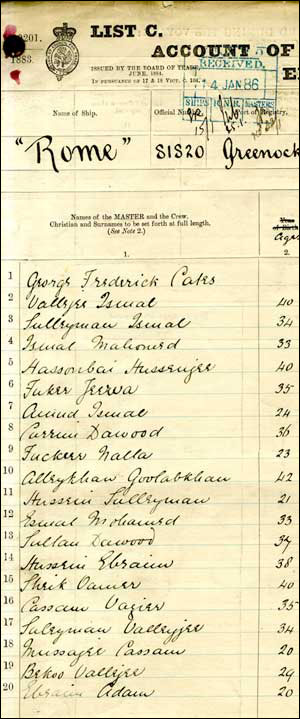 201.
1883.
LIST C.
ACCOUNT OF
ISSUED BY THE BOARD OF TRADE,
JUNE, 1884.
IN PURSUANCE OF 17 & 18 VICT. C. 104.
RECEIVED
14 JAN 86
Name of Ship.
Official
of Registry.
"Rome"
81820
Greenock
Names of the MASTER and the Crew,
Christian and Surnames to be set forth at full length.
(See Note 2.)
of Birth
Age
1.
2.
1 George Frederick Cates
2 Vallejee Ismal 40
3 Sulleyman Ismal 34
4 Ismal Mahomed 33
5 Hassonbai Hussenjee 40
6 Fuker Jeewa 35
7 Amud Ismal 24
8 Currim Dawood 36
9 Fuckeer Nalla 23
10 Alleykhan Goolabkhan 42
11 Hussein Sulleyman 21
12 Esmal Mohamed 33
13 Sultan Dawood 37
14 Hussein Ebraim 38
15 Sheik Oamer 40
16 Cassam Vazier 35
17 Suleyman Valleyjee 34
18 Mussagee Cassam 20
19 Bekoo Vallejee 29
20 Ebraim Adam 20